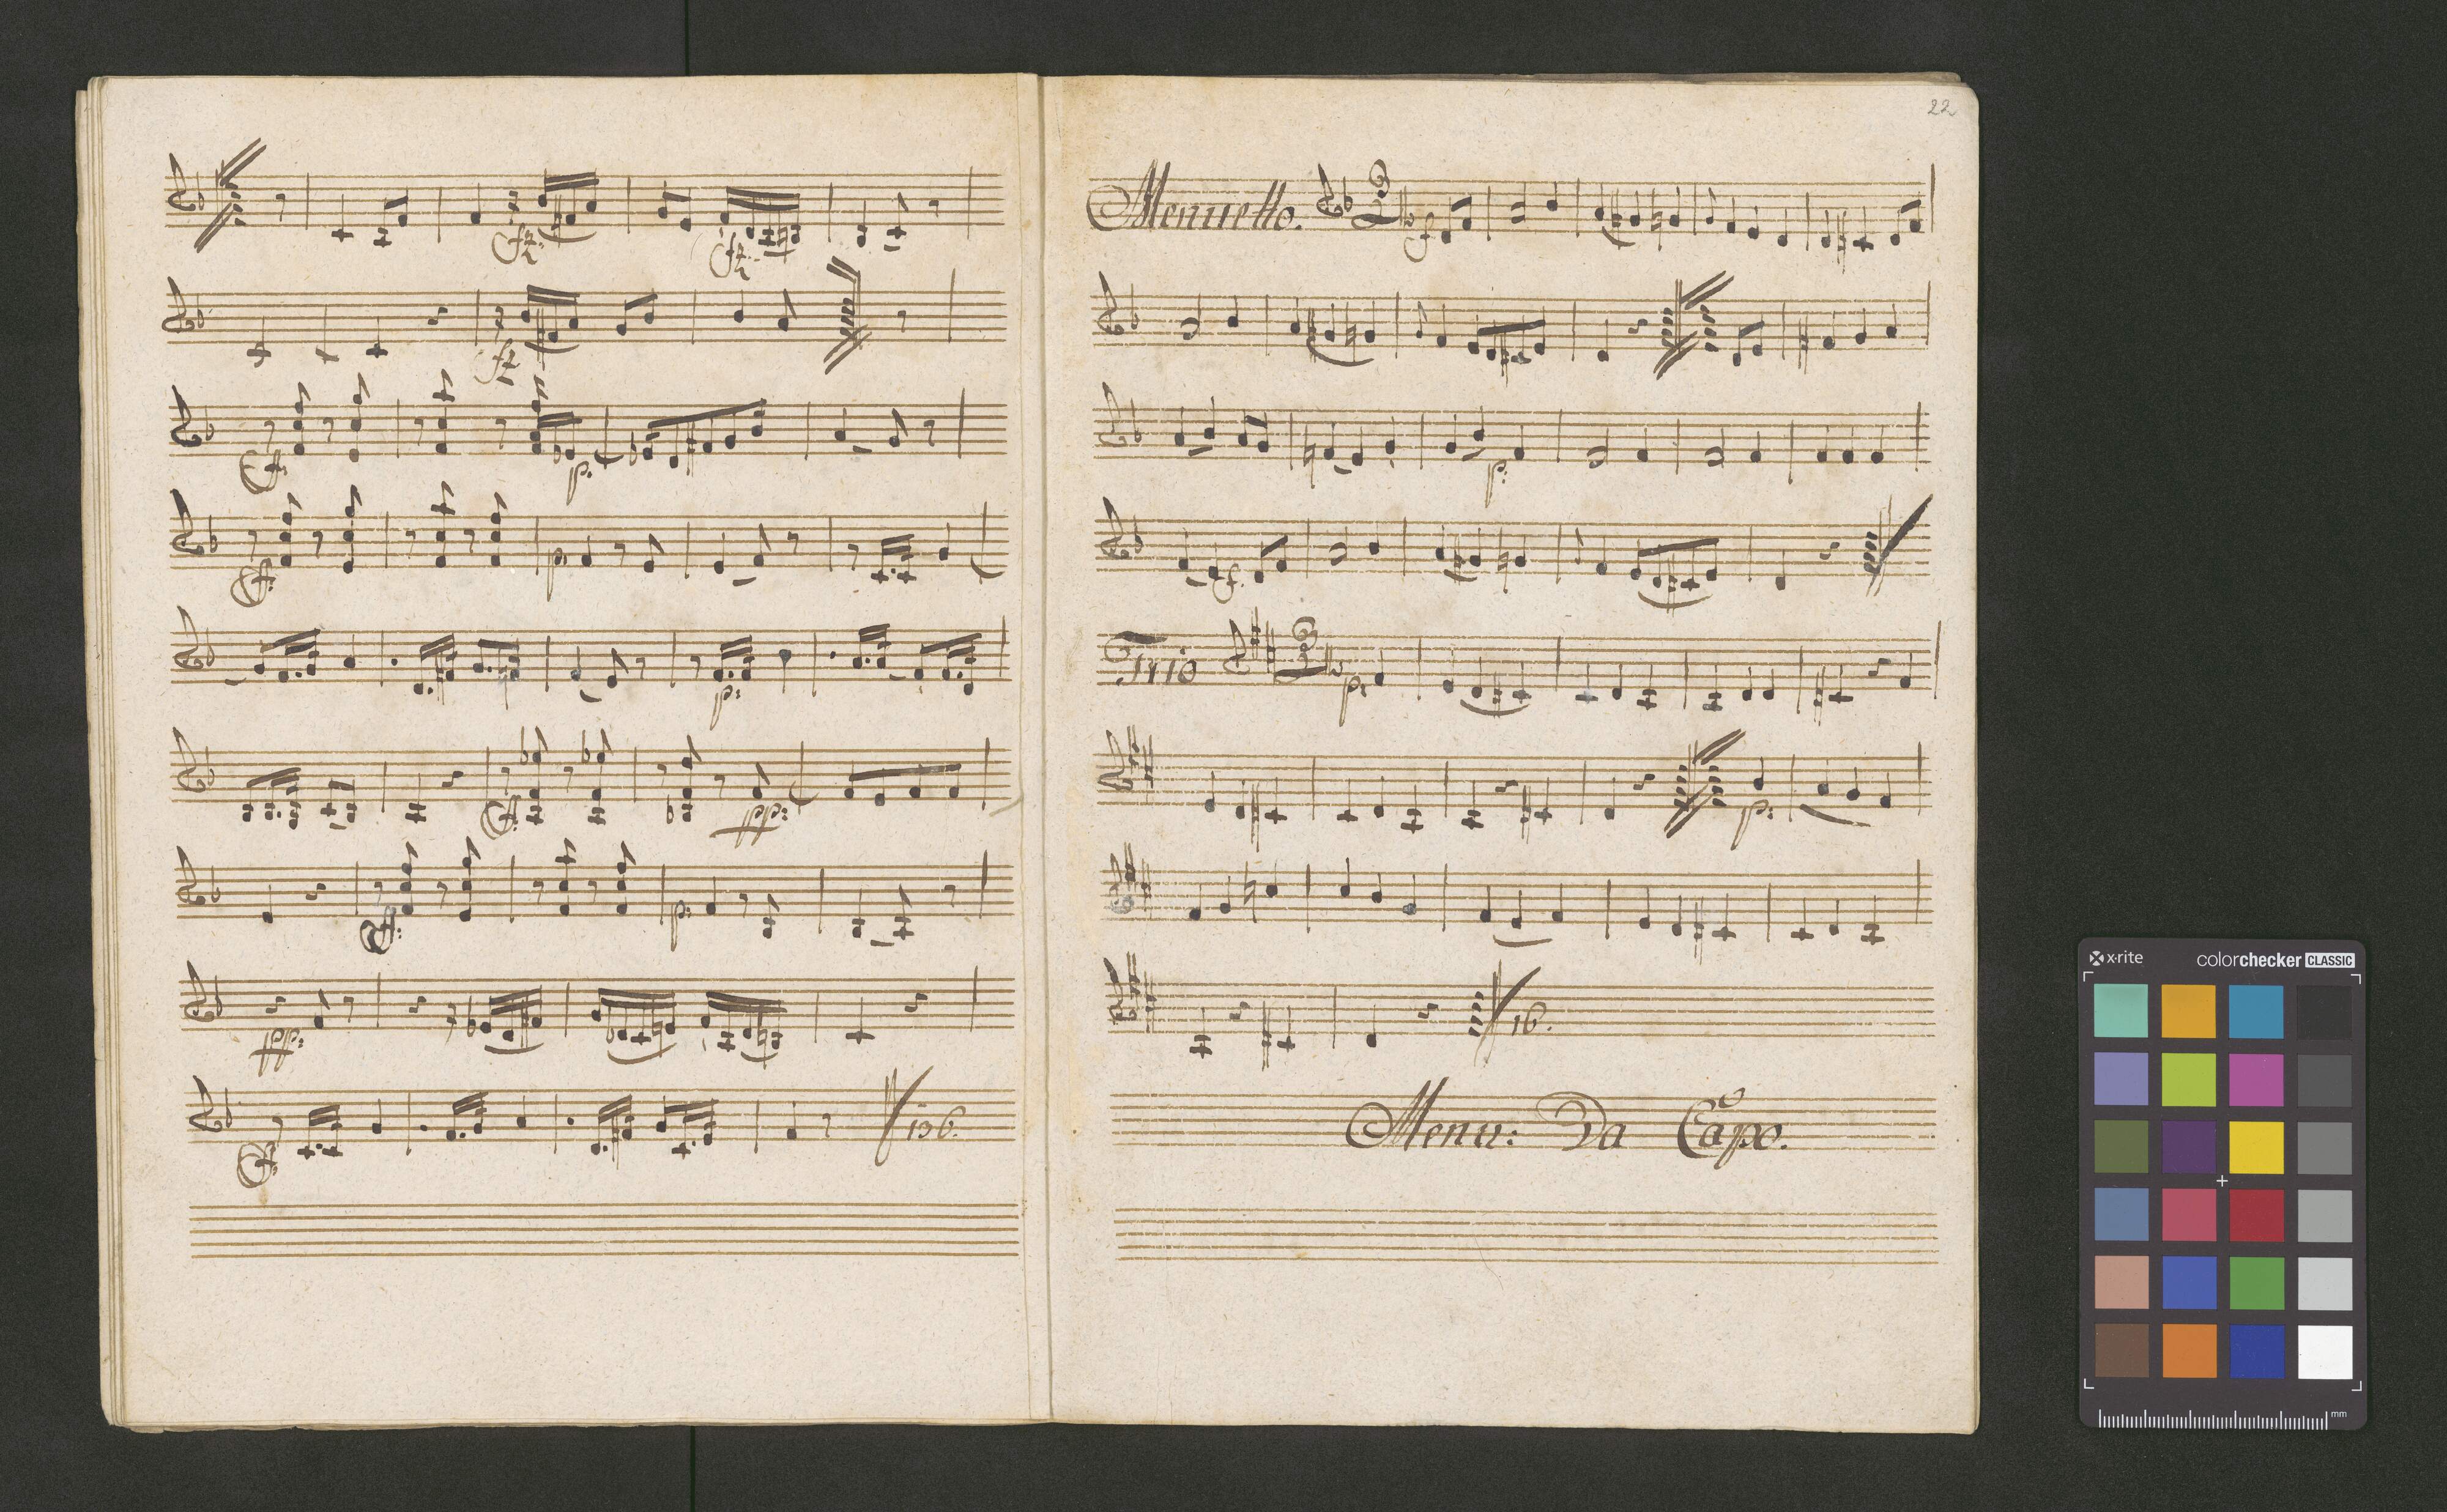 fz: fz:
fz
f: p:
f: p:
p:
f: pp:
f: p:
pp:
f: 136.
22
Menuetto. 3 f
p:
f.
Trio 3 p:
p:
16.
Menu: Da Capo.
x-rite colorchecker CLASSIC
mm